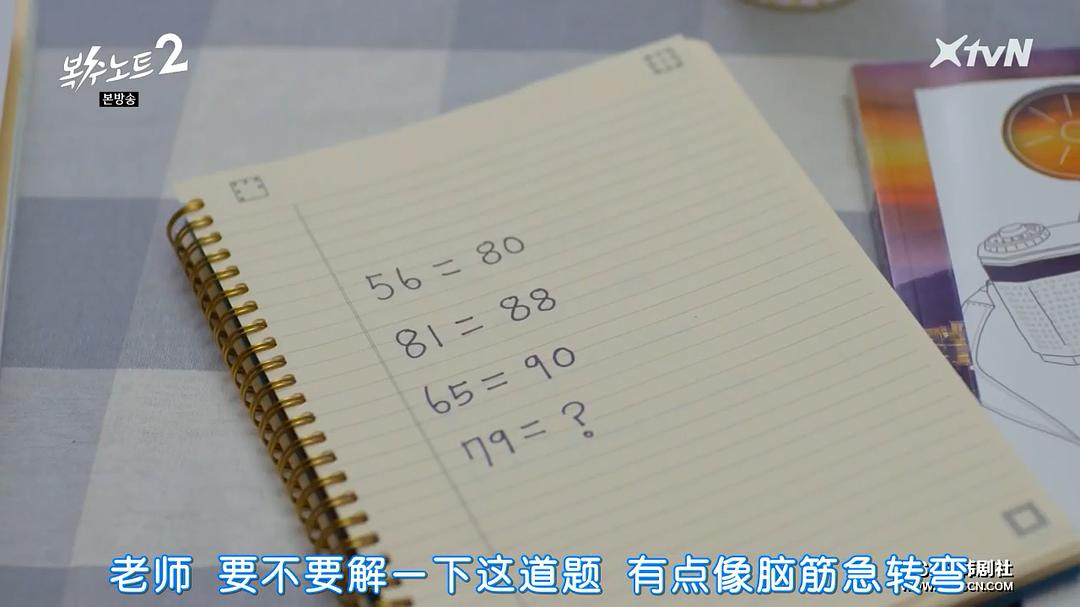 복수노트2
본방송
XtvN
56 = 80
81 = 88
65 = 90
79 = ?
老师 要不要解一下这道题 有点像脑筋急转弯
韩剧社